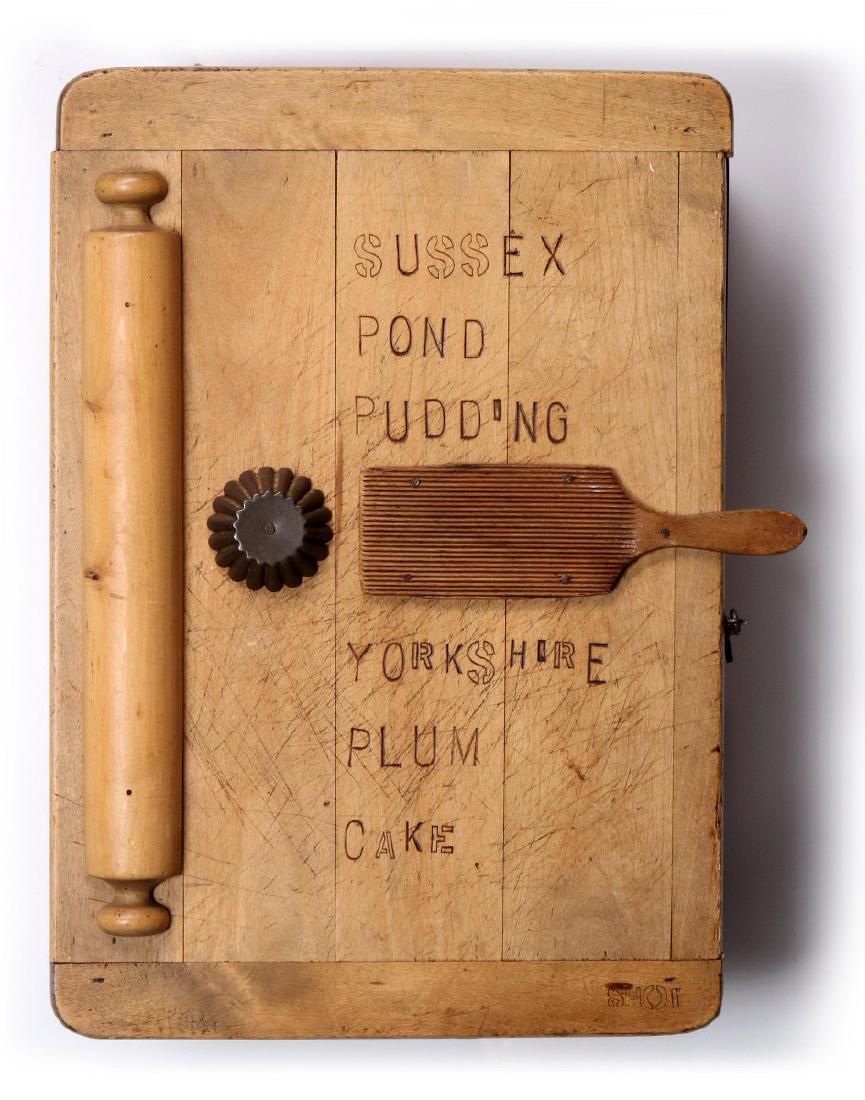 SUSSEX
POND
PUDDING
YORKSHIRE
PLUM
CAKE